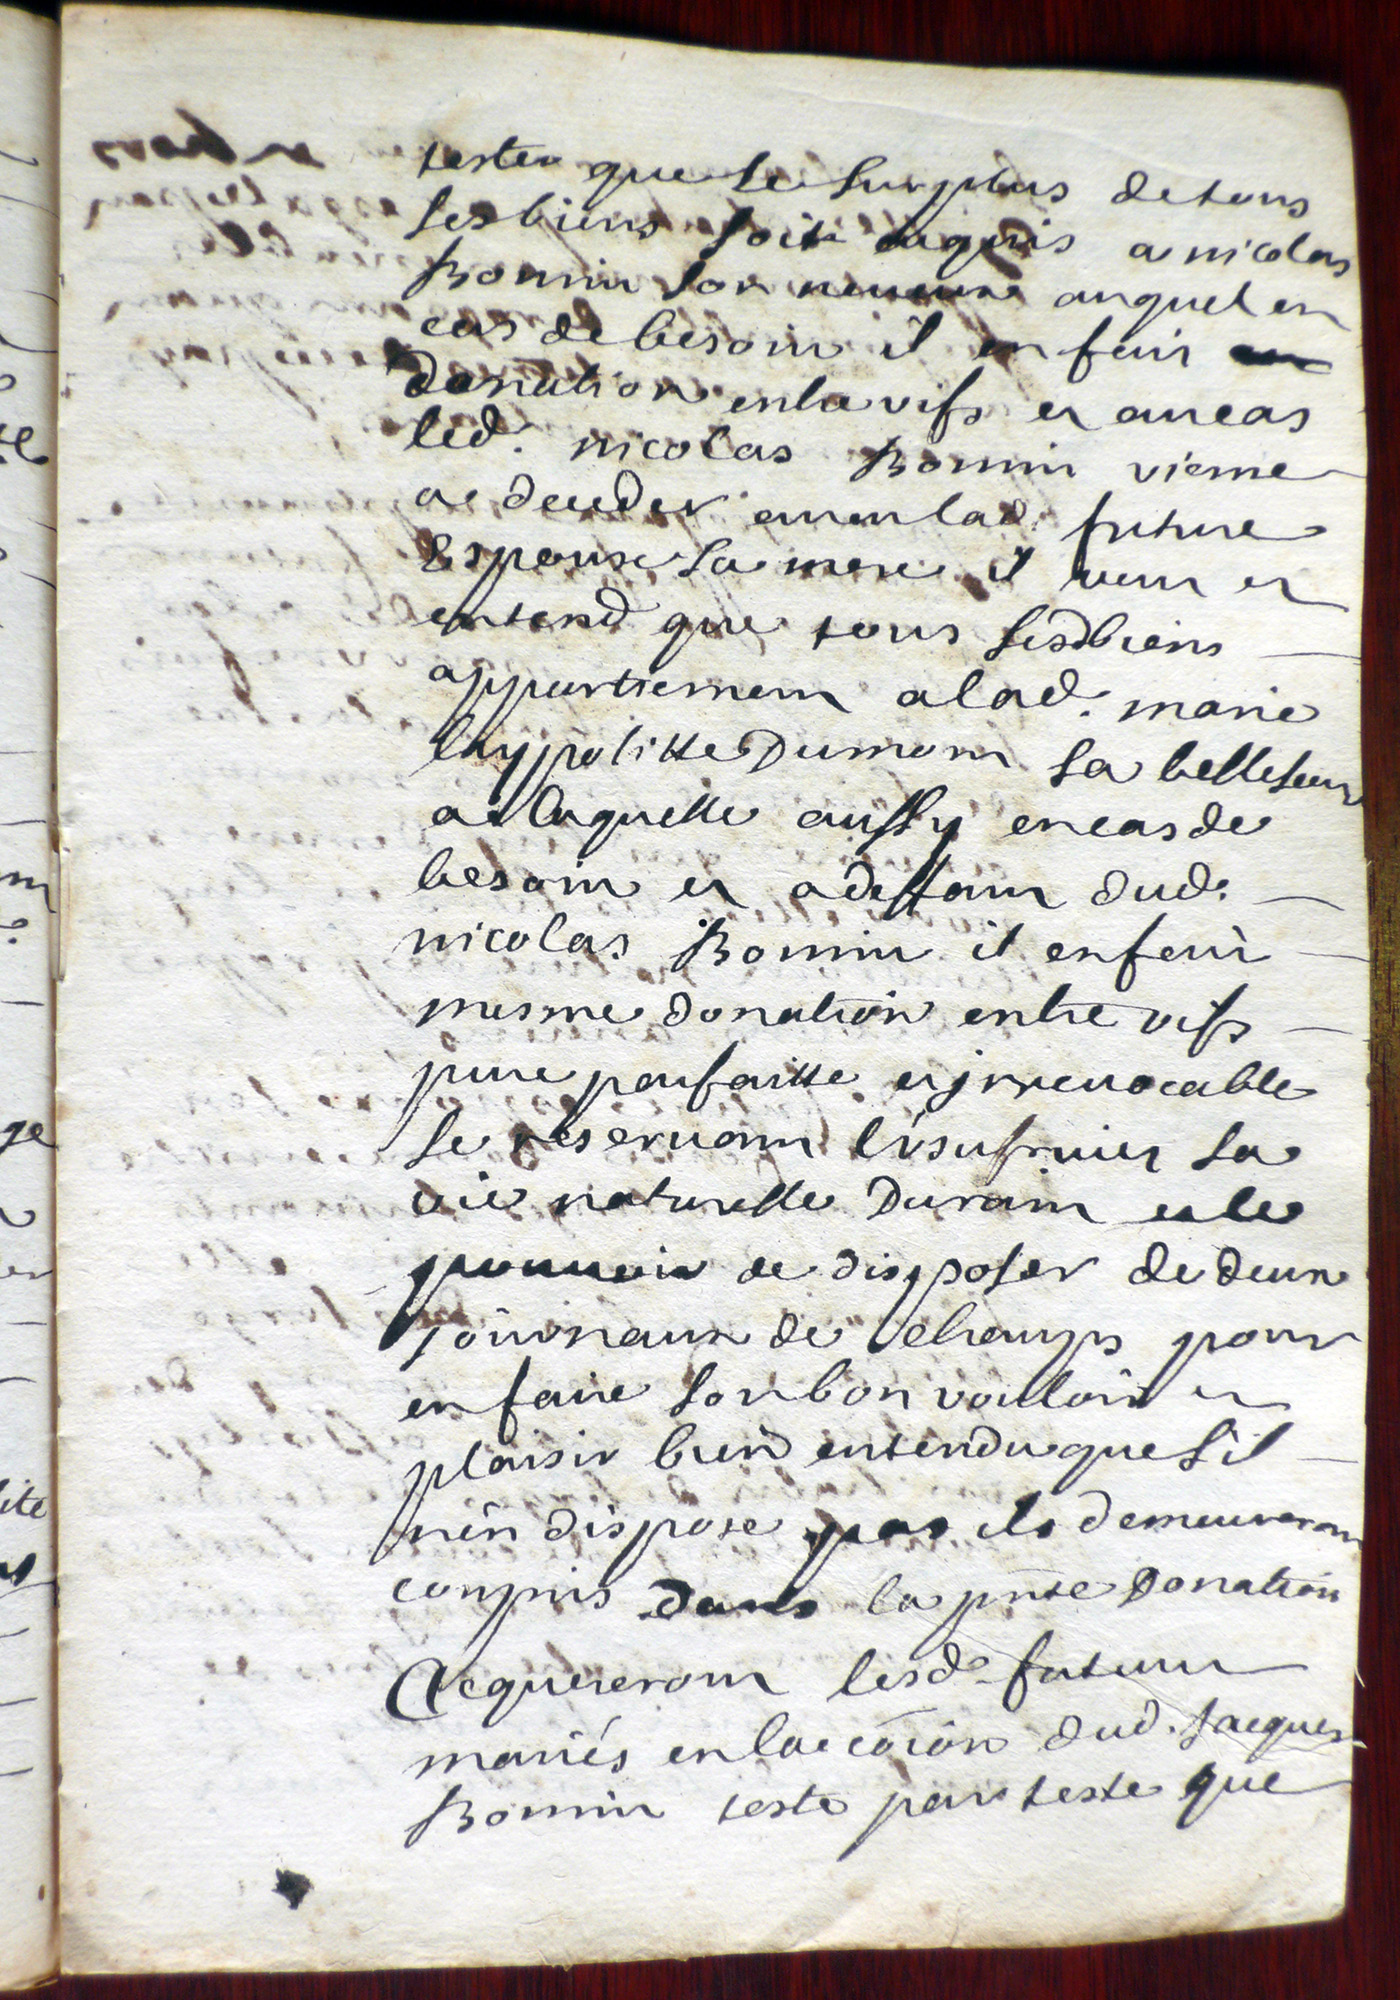 tester que le surplus de tous
ses biens soit acquis a nicolas
Bonnin son neveux auquel en
cas de besoin il en fait
donation entre vifs et au cas
led. nicolas Bonnin vienne
a deceder avan lad. future
Espouse sa mere il veut et
entend que tous sesd biens
appartiennent a lad. marie
hypolitte Dumont sa bellesœur
a laquelle aussy en cas de
besoin et adeffaut dud.
nicolas Bonnin il en fait
mesme donation entre vifs
pure parfaitte et jrrevocable
se reservant l'vsufruict sa
vie naturelle Durant et le
pouvoir de disposer de deux
journaux de champs pour
en faire son bon vouloir et
plaisir bien entendu que s'il
n'en dispose pas ils demeureront
compris dans la pnte Donation
Acquereront lesd. futurs
mariés en la coion dud. Jacques
Bonnin teste par teste que